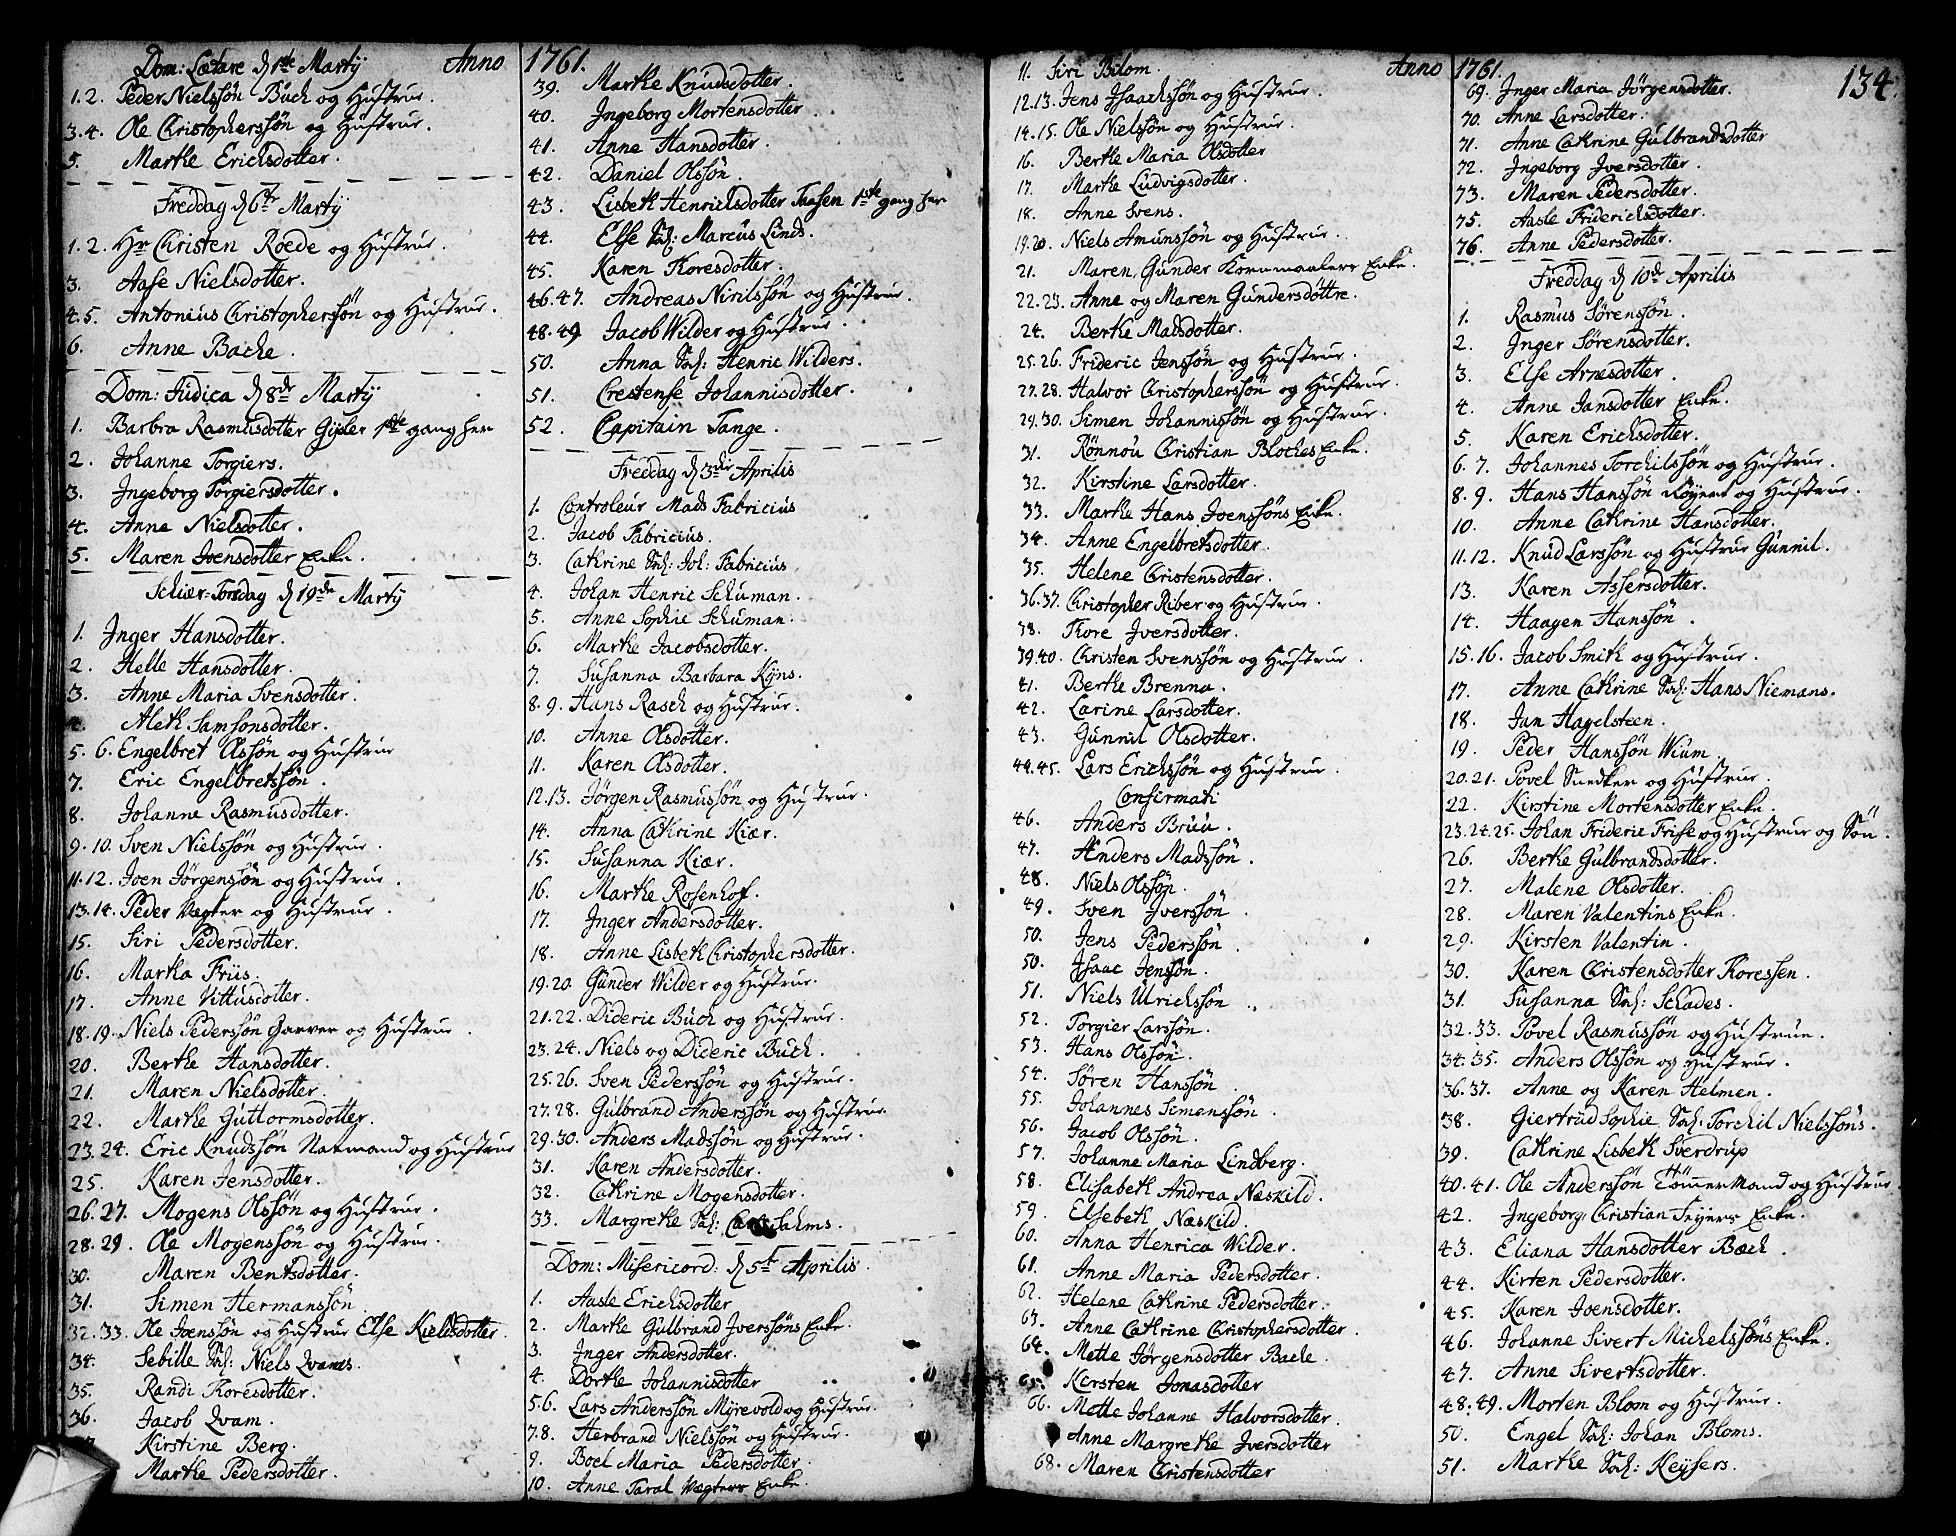 Dom: Lætare d 1ste Martij Anno 1761.
1. 2. Peder Nielssøn Buch og Hustrue.
3. 4. Ole Christopherssøn og Hustrue.
5. Marthe Erichsdotter.
Freddag d 6te Martij
1. 2. Hr Christen Roede og Hustrue.
3. Aase Nielsdotter.
4. 5. Antonius Christopherssøn og Hustrue.
6. Anne Bache.
Dom: Judica d 8de Martij
1. Barbra Rasmusdotter 1ste gang her
2. Johanne Torgiers.
3. Ingeborg Torgiersdotter.
4. Anne Nielsdotter.
5. Maren Joensdotter Enke.
Schiær-Torsdag d 19de Martij
1. Inger Hansdotter.
2. Helle Hansdotter.
3. Anne Maria Svensdotter.
4. Aleth Samsonsdotter.
5. 6. Engelbret Olssøn og Hustrue
7. Eric Engelbretssøn.
8. Johanne Rasmusdotter.
9. 10. Sven Nielssøn og Hustrue.
11. 12. Joen Jørgenssøn og Hustrue.
13. 14. Peder Vægter og Hustrue.
15. Siri Pedersdotter.
16. Martha Friis.
17. Anne Vittusdotter.
18. 19. Niels Pederssøn Garver og Hustrue.
20. Berthe Hansdotter.
21. Maren Nielsdotter.
22. Marthe Guttormsdotter.
23. 24. Eric Knudssøn Natmand og Hustrue
25. Karen Jensdotter.
26. 27. Mogens Olssøn og Hustrue.
28. 29. Ole Mogenssøn og Hustrue.
30. Maren Bentsdotter.
31. Simen Hermanssøn
32. 33. Ole Joenssøn og Hustrue Else Kieldsdotter.
34. Sebille Sal: Niels Qvams.
35. Randi Thoresdotter.
36. Jacob Qvam.
Kirstine Berg.
Marthe Pedersdotter.
39. Marthe Knudsdotter.
40. Ingeborg Mortensdotter.
41. Anne Hansdotter.
42. Daniel Olssøn.
43. Lisbeth Henrichsdotter Taasen 1ste gang her
44. Else Sal: Marcus Linds.
45. Karen Thoresdotter.
46. 47. Andreas Nirilssøn og Hustrue.
48. 49. Jacob Wilder og Hustrue.
50. Anna Sal: Henric Wilders.
51. Crestense Johannisdotter.
52. Capitain Tange.
Freddag d 3die Aprilis
1. Controleur Mads Fabricius
2. Jacob Fabricius.
3. Cathrine Sal: Joh: Fabricius
4. Johan Henric Schuman.
5. Anne Sophie Schuman.
6. Marthe Jacobsdotter.
7. Susanna Barbara Kyns.
8. 9. Hans Rasch og Hustrue.
10. Anne Olsdotter.
11. Karen Olsdotter.
12. 13. Jørgen Rasmussøn og Hustrue.
14. Anna Cathrine Kiær.
15. Susanna Kiær.
16. Marthe Rosenhof.
17. Inger Andersdotter.
18. Anne Lisbeth Christophersdotter.
19. 20. Gunder Wilder og Hustrue.
21. 22. Dideric Buch og Hustrue.
23. 24. Niels og Dideric Buch.
25. 26. Sven Pederssøn og Hustrue.
27. 28. Gulbrand Anderssøn og Hustrue.
29. 30. Anders Madssøn og Hustrue.
31. Karen Andersdotter.
32. Cathrine Mogensdotter.
33. Margrethe Sal: Salms.
Dom: Misericord: d 5te Aprilis
1. Aasle Erichsdotter
2. Marthe Gulbrand Iverssøns Enke.
3. Inger Andersdotter.
4. Dorthe Johannisdotter
5. 6. Lars Anderssøn Myrevold og Hustrue.
7. 8. Herbrand Nielssøn og Hustrue.
9. Boel Maria Pedersdotter.
10. Anne Taral Vægters Enke.
11. Siri Bilom. Anno 1761. 134.
12. 13. Jens Isaachssøn og Hustrue.
14. 15. Ole Nielssøn og Hustrue.
16. Berthe Maria Olsdotter
17. Marthe Ludvigsdotter.
18. Anne Svens.
19. 20. Niels Amunssøn og Hustrue.
21. Maren, Gunder Kornmaalers Enke.
22. 23. Anne og Maren Gundersdøttre.
24. Berthe Madsdotter.
25. 26. Frideric Jenssøn og Hustrue.
27. 28. Halvor Christopherssøn og Hustrue.
29. 30. Simen Johannissøn og Hustrue.
31. Rønnou Christian Bloches Enke.
32. Kirstine Larsdotter.
33. Marthe Hans Joenssøns Enke.
34. Anne Engelbretsdotter.
35. Helene Christensdotter.
36. 37. Christopher Riber og Hustrue.
38. Thore Iversdotter.
39. 40. Christen Svenssøn og Hustrue.
41. Berthe Brenna.
42. Larine Larsdotter.
43. Gunnil Olsdotter.
44. 45. Lars Erichssøn og Hustrue.
Confirmati
46. Anders Bruu.
47. Anders Madssøn.
48. Niels Olssøn.
49. Sven Iverssøn.
50. Jens Pederssøn.
50. Isaac Jenssøn.
51. Niels Ulrichssøn.
52. Torgier Larssøn.
53. Hans Olssøn.
54. Søren Hanssøn.
55. Johannes Simenssøn.
56. Jacob Olssøn.
57. Johanne Maria Lindberg.
58. Elisabeth Andrea Næskild.
59. Elsebeth Næskild.
60. Anna Henrica Wilder.
61. Anne Maria Pedersdotter.
62. Helene Cathrine Pedersdotter.
63. Anne Cathrine Christophersdotter.
64. Mette Jørgensdotter Bache.
65. Kirsten Jonasdotter
66. Mette Johanne Halvorsdotter.
Anne Margrethe Iversdotter
68. Maren Christensdotter
69. Inger Maria Jørgensdotter.
70. Anne Larsdotter.
71. Anne Cathrine Gulbrandsdotter
72. Ingeborg Iversdotter.
73. Maren Pedersdotter.
75. Aasle Friderichsdotter.
76. Anne Pedersdotter.
Freddag d 10de Aprilis
1. Rasmus Sørenssøn.
2. Inger Sørensdotter.
3. Else Arnesdotter.
4. Anne Jansdotter Enke.
5. Karen Erichsdotter.
6. 7. Johannes Torchilssøn og Hustrue.
8. 9. Hans Hanssøn og Hustrue.
10. Anne Cathrine Hansdotter.
11. 12. Knud Larssøn og Hustrue Gunnil.
13. Karen Assersdotter.
14. Haagen Hanssøn.
15. 16. Jacob Smith og Hustrue.
17. Anne Cathrine Sal: Hans Niemans.
18. Jan Hagelsteen.
19. Peder Hanssøn Wium
20. 21. Povel Snedker og Hustrue.
22. Kirstine Mortensdotter Enke.
23. 24. 25. Johan Frideric Frise og Hustrue og Søn.
26. Berthe Gulbrandsdotter.
27. Malene Olsdotter.
28. Maren Valentins Enke.
29. Kirsten Valentin.
30. Karen Christensdotter Thoressen.
31. Susanna Sal: Schades.
32. 33. Povel Rasmussøn og Hustrue.
34. 35. Anders Olssøn og Hustrue.
36. 37. Anne og Karen Helmen.
38. Giertrud Sophie Sal: Torchil Nielssøns.
39. Cathrine Lisbeth Sverdrup
40. 41. Ole Anderssøn Tømmermand og Hustrue.
42. Ingeborg, Christian Feyers Enke.
43. Eliana Hansdotter Bæch.
44. Kirten Pedersdotter.
45. Karen Joensdotter.
46. Johanne Sivert Michelssøns Enke.
47. Anne Sivertsdotter.
48. 49. Morten Blom og Hustrue.
50. Engel Sal: Johan Bloms.
51. Marthe Sal: Keysers.